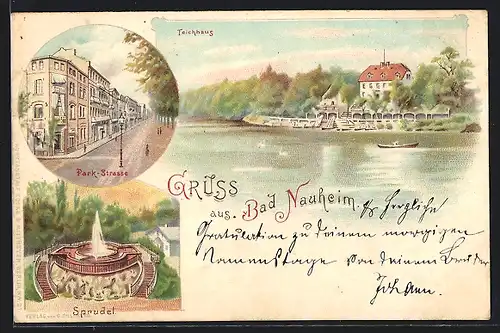 Teichhaus
Park-Strasse
GRUSS
aus. Bad Nauheim.
Herzliche
Gratulation zu Deinem morgigen
Namenstage von Deinem Bruder
Johann.
Sprudel